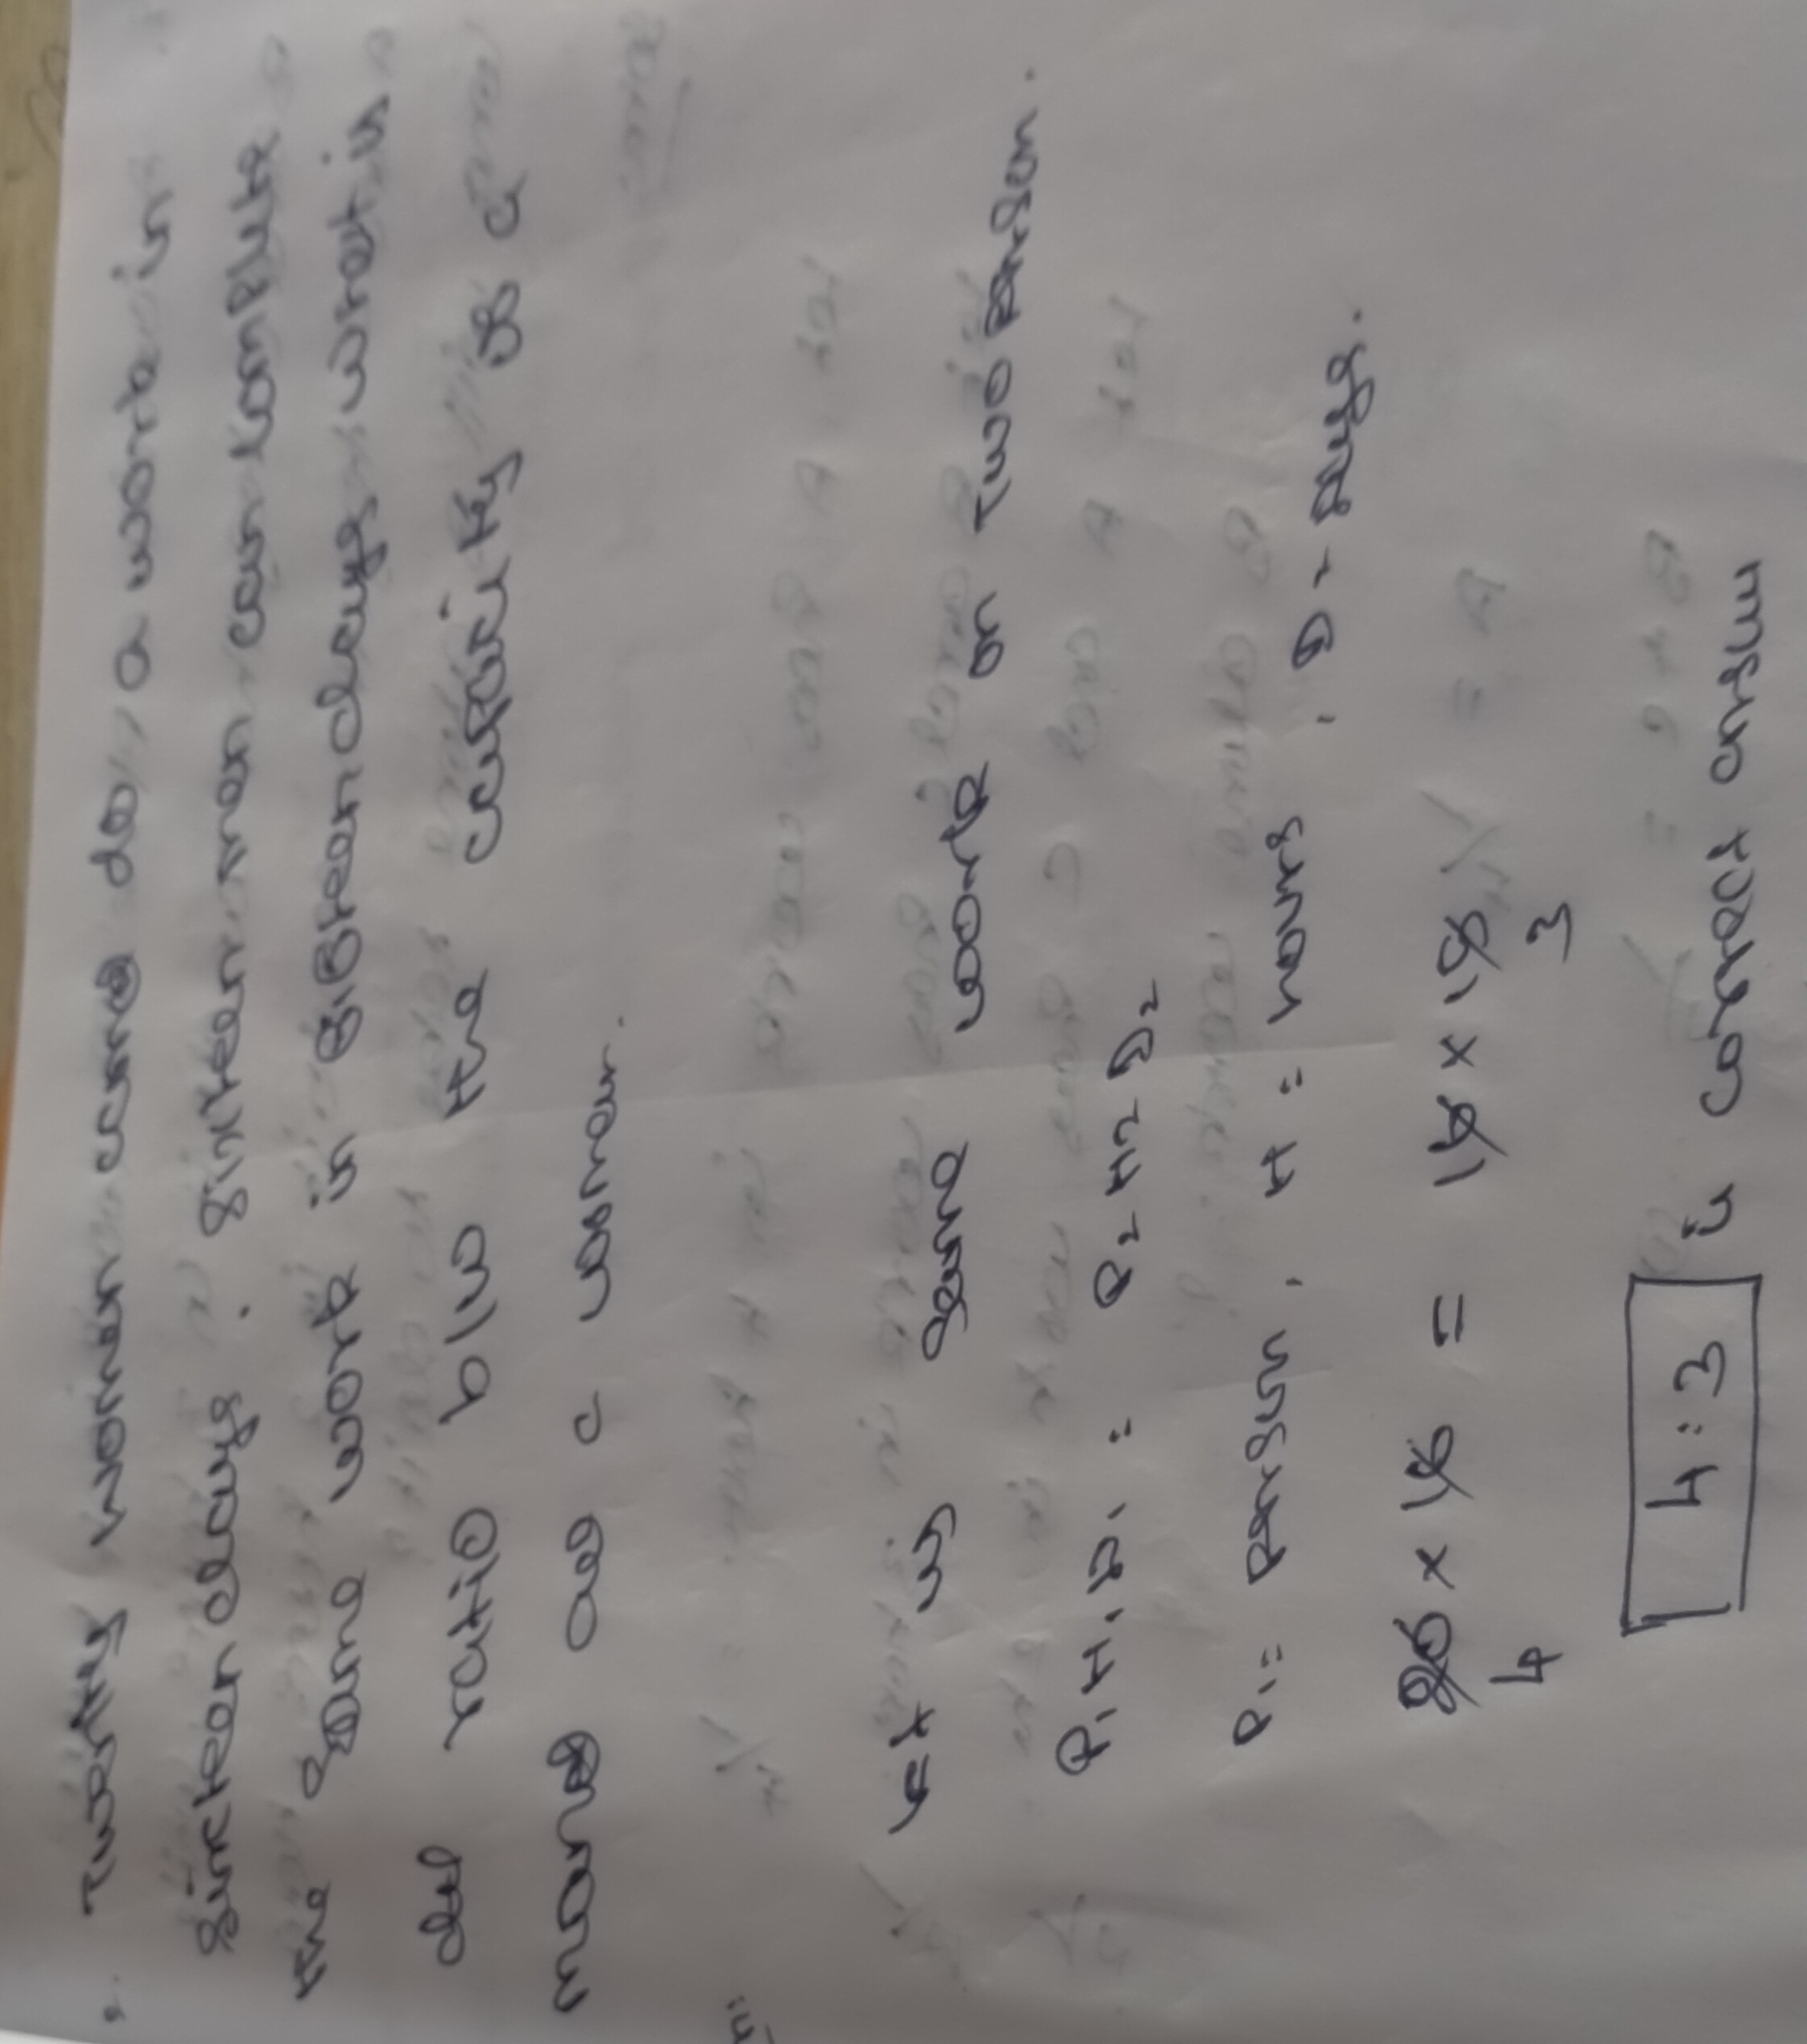 Twenty women can do a work in
sixteen days. Sixteen men can complete
the same work in fifteen days what is
the ratio b/w the capacity of a
man and a women.
n:
Let us same work on Two person.
P₁ H₁ D₁ = P₂ H2 D₂
P₁ = person, H = hours, D = Days.
20 x 16 = 16 x 15
4 3
4:3 is correct answer